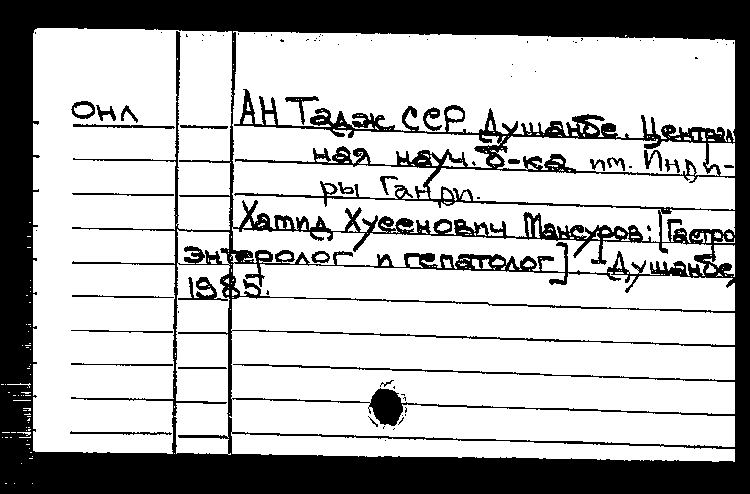 ОНЛ АН Тадж. ССР. Душанбе. Централь
ная науч. б-ка им. Инди-
ры Ганди.
Хамид Хусенович Мансуров: [Гастро
энтеролог и гепатолог]. - Душанбе,
1985.